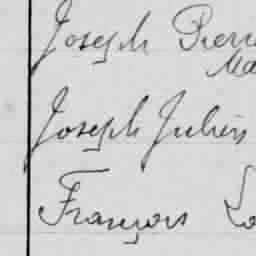 Joseph Pierr
Ma
Joseph Julien
François Lo